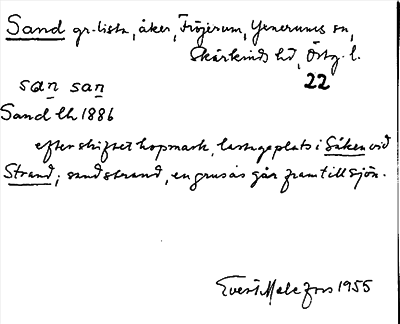 Sand gr.lista, åker, Fröjerum, Yenerums sn,
Skärkinds hd, Östg. l.
22
san san
Sand lk 1886
efter skiftet hopmark, lastageplats i Såken vid
Strand; sandstrand, en grusås går fram till sjön.
Evert Melefors 1955